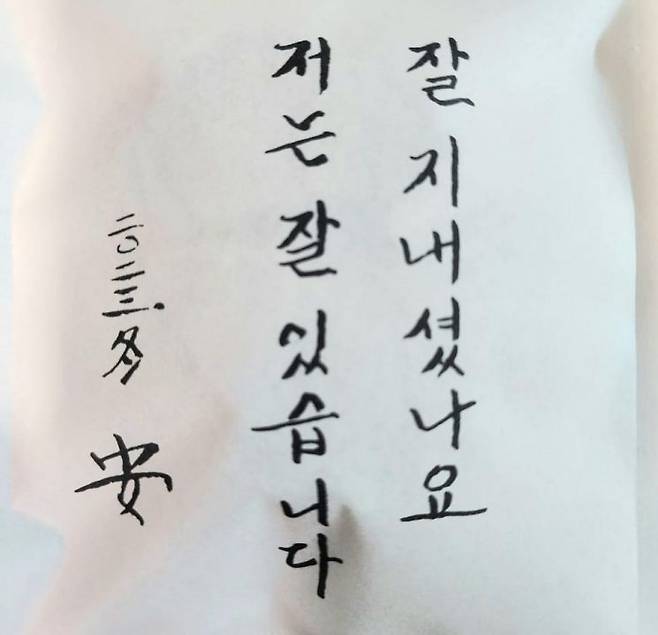 잘 지내셨나요
저는 잘 있습니다
二〇二三. 冬 安